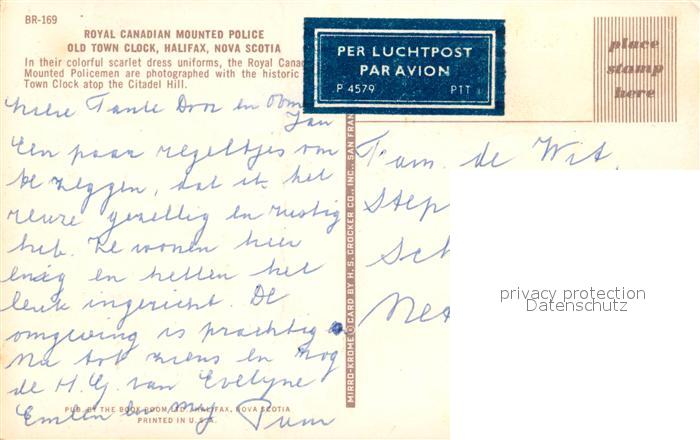 BR-169
ROYAL CANADIAN MOUNTED POLICE
OLD TOWN CLOCK, HALIFAX, NOVA SCOTIA
In their colorful scarlet dress uniforms, the Royal Canad
Mounted Policemen are photographed with the historic
Town Clock atop the Citadel Hill.
PER LUCHTPOST
PAR AVION
P 4579 PTT
place
stamp
here
Tante Door en Oom
Jan
Een paar regeltjes om
te zeggen, dat ik het
reuze gezellig en rustig
heb. Ze wonen hier
enig en hebben het
leuk ingericht. De
omgeving is prachtig
Na tot ziens en nog
de H.G. van Evelyne
en my Pum
Fam. de Wit
Step
Sch
Net
MIRRO-KROME CARD BY H. S. CROCKER CO., INC., SAN FRAN
PUB. BY THE BOOK ROOM LTD., HALIFAX, NOVA SCOTIA
PRINTED IN U.S.A.
privacy protection
Datenschutz